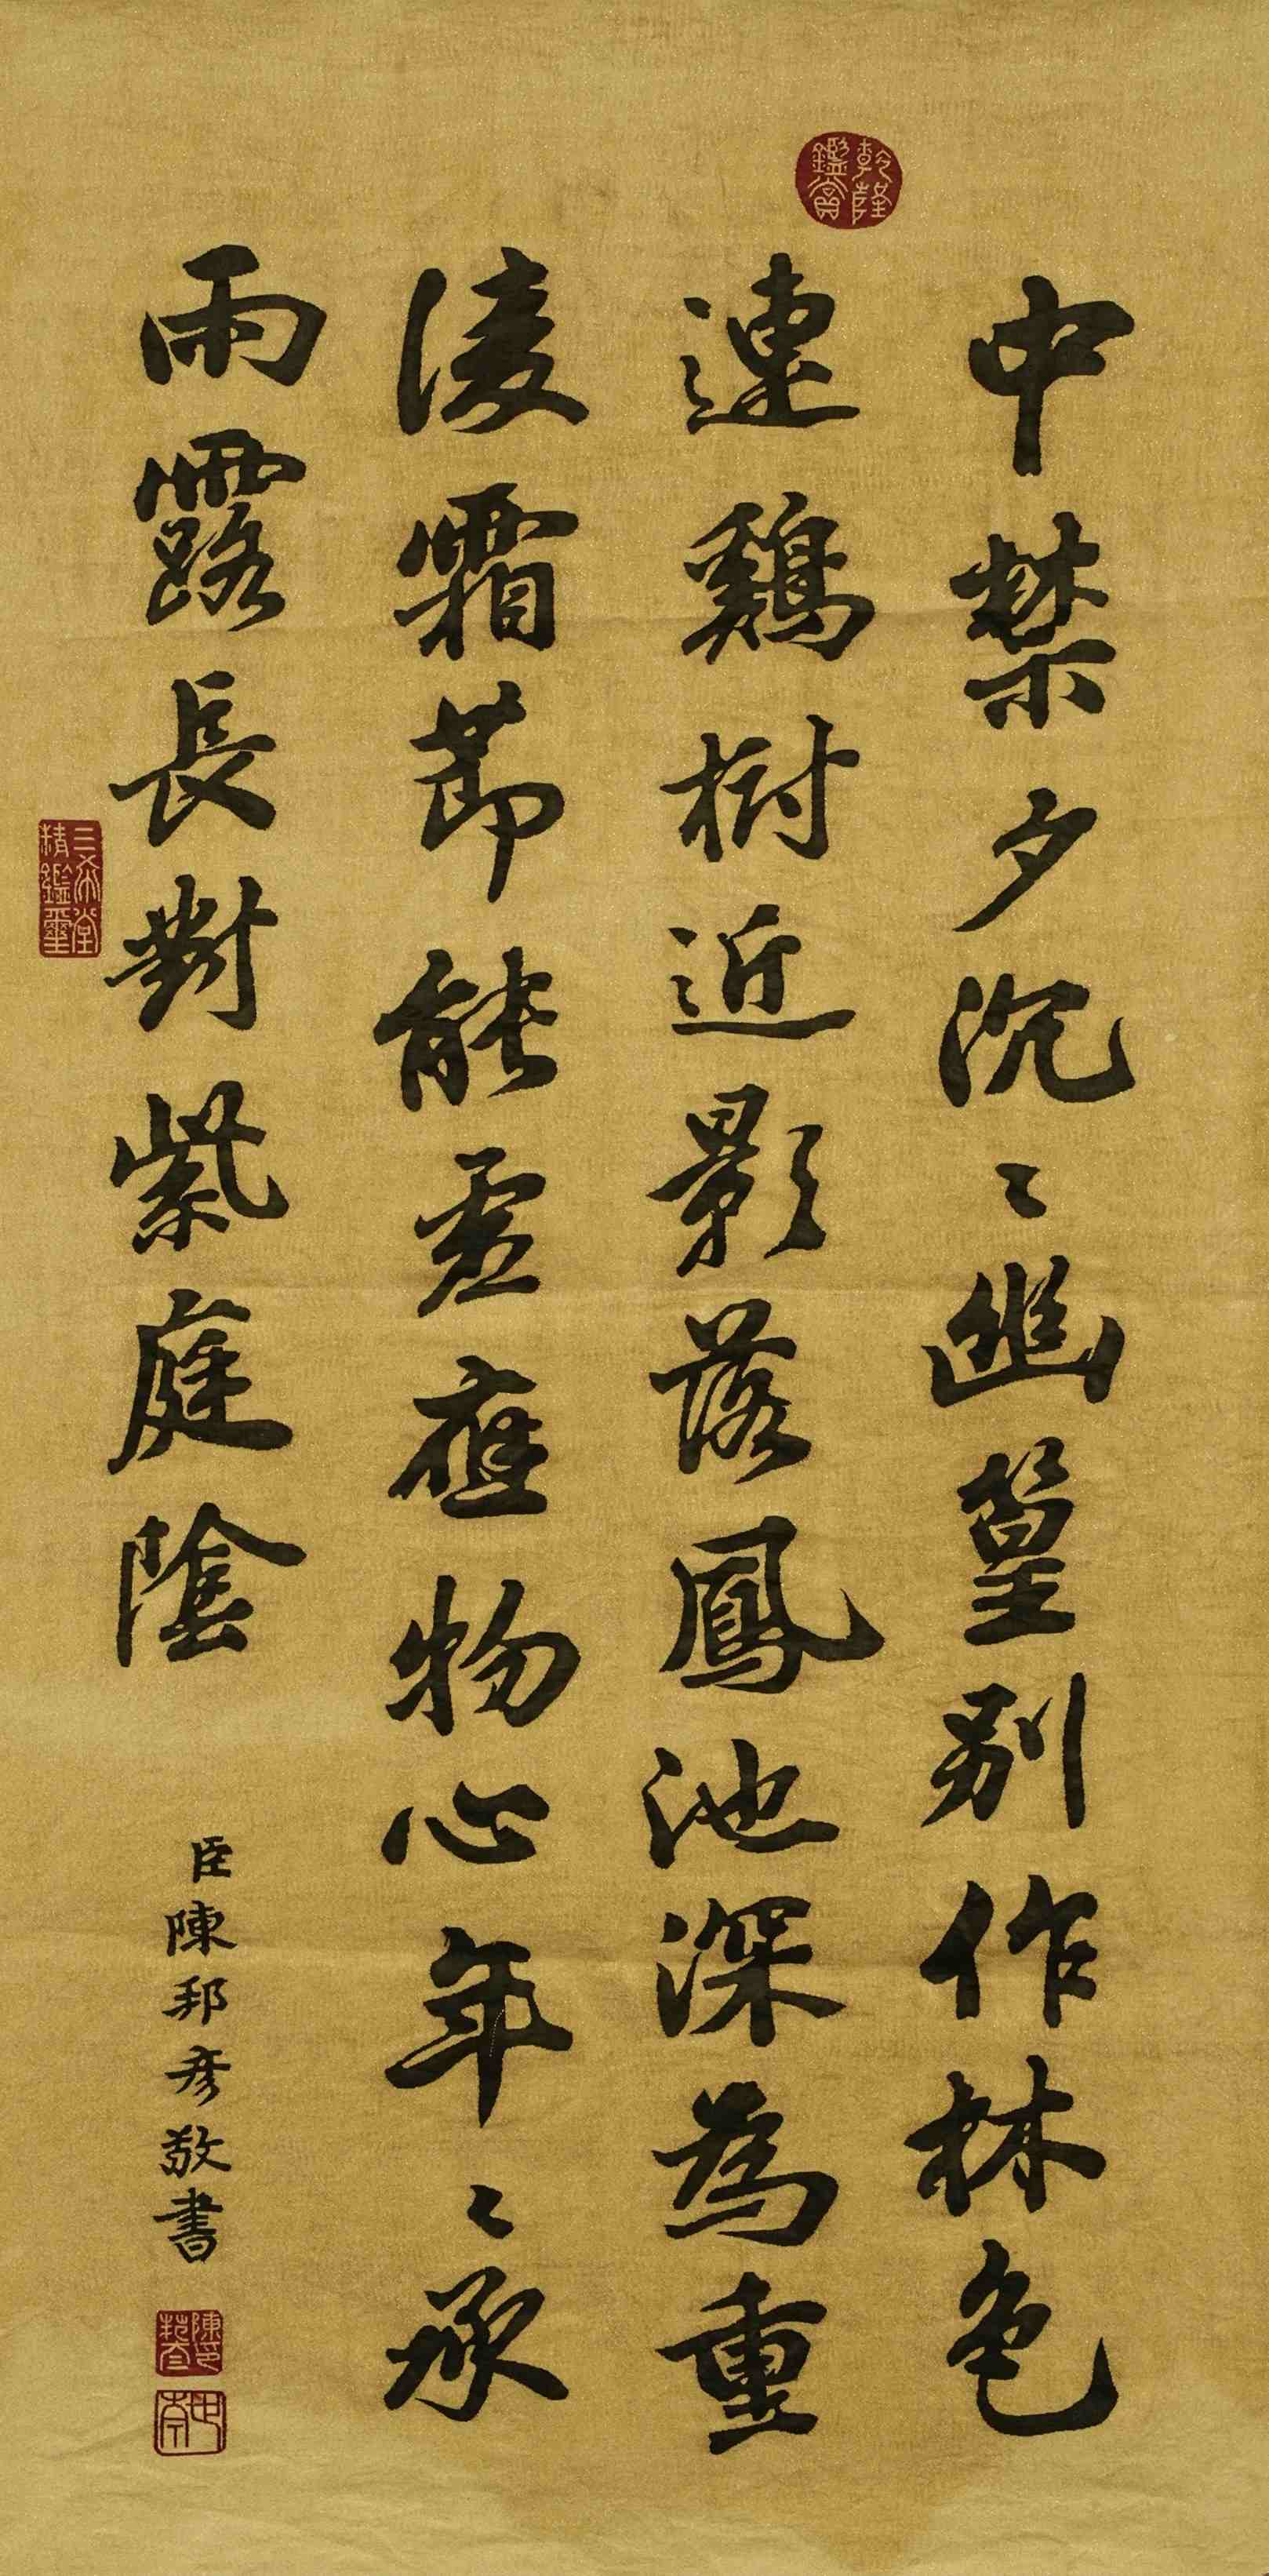 乾隆鑑賞
中禁夕沉〻幽篁别作林色
連鷄樹近影落鳳池深為重
淩霜節能虛應物心年〻承
雨露長對紫庭陰
臣陳邦彦敬書
陳印邦彦
世南
三希堂精鑑璽